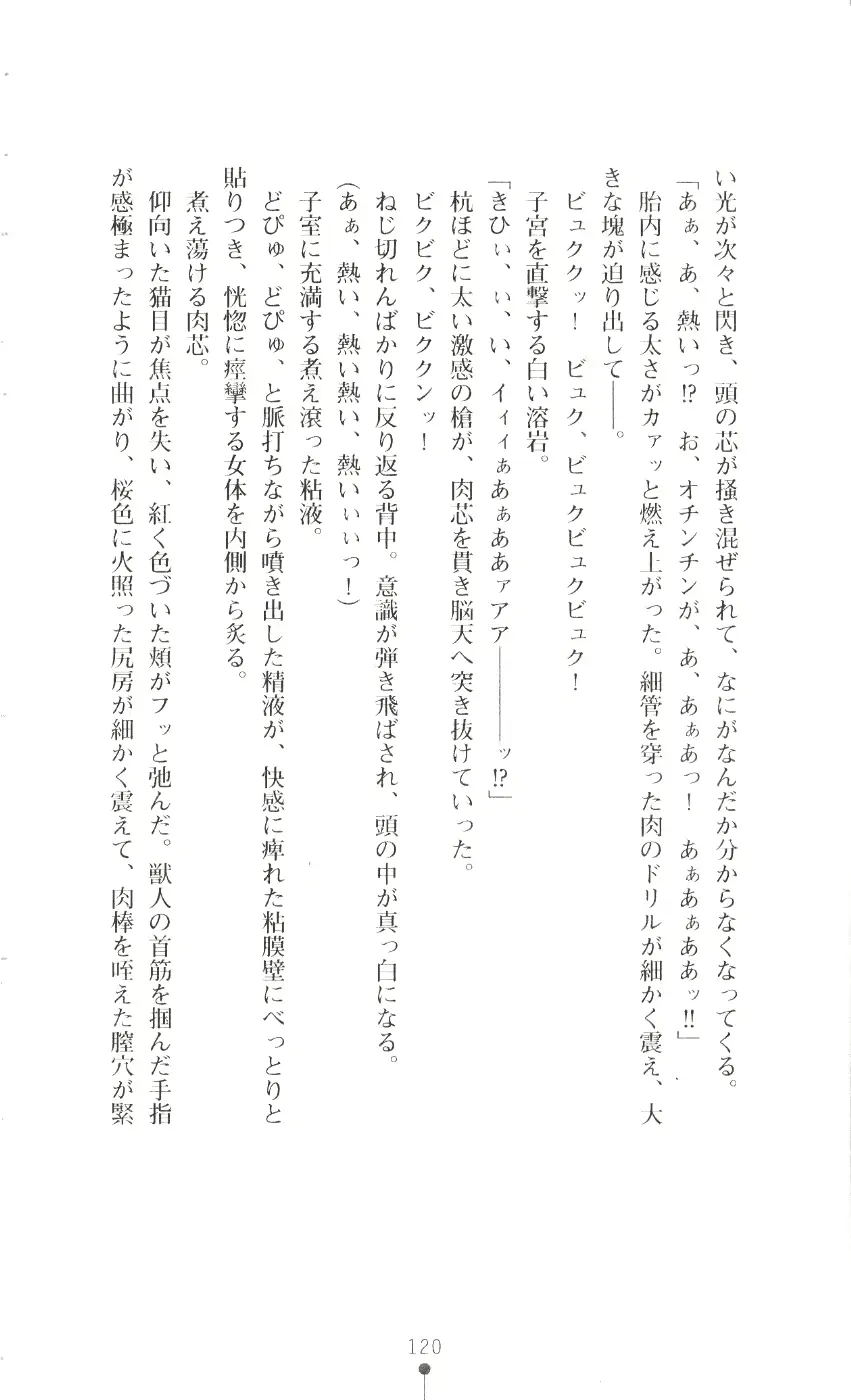 い光が次々と閃き、頭の芯が掻き混ぜられて、なにがなんだか分からなくなってくる。
「あぁ、あ、熱いっ!?　お、オチンチンが、あ、あぁあっ！　あぁあぁああッ!!」
　胎内に感じる太さがカァッと燃え上がった。細管を穿った肉のドリルが細かく震え、大
きな塊が迫り出して――。
　ビュククッ！　ビュク、ビュクビュクビュク！
　子宮を直撃する白い溶岩。
「きひぃ、ぃ、い、イィィぁあぁああァアア――――ッ!?」
　杭ほどに太い激感の槍が、肉芯を貫き脳天へ突き抜けていった。
　ビクビク、ビククンッ！
　ねじ切れんばかりに反り返る背中。意識が弾き飛ばされ、頭の中が真っ白になる。
（あぁ、熱い、熱い熱い、熱いぃぃっ！）
　子室に充満する煮え滾った粘液。
　どぴゅ、どぴゅ、と脈打ちながら噴き出した精液が、快感に痺れた粘膜壁にべっとりと
貼りつき、恍惚に痙攣する女体を内側から炙る。
　煮え蕩ける肉芯。
　仰向いた猫目が焦点を失い、紅く色づいた頬がフッと弛んだ。獣人の首筋を掴んだ手指
が感極まったように曲がり、桜色に火照った尻房が細かく震えて、肉棒を咥えた膣穴が緊
120